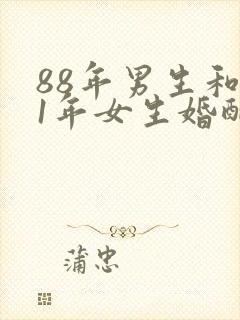 88年男生和
1年女生婚配
蒲忠